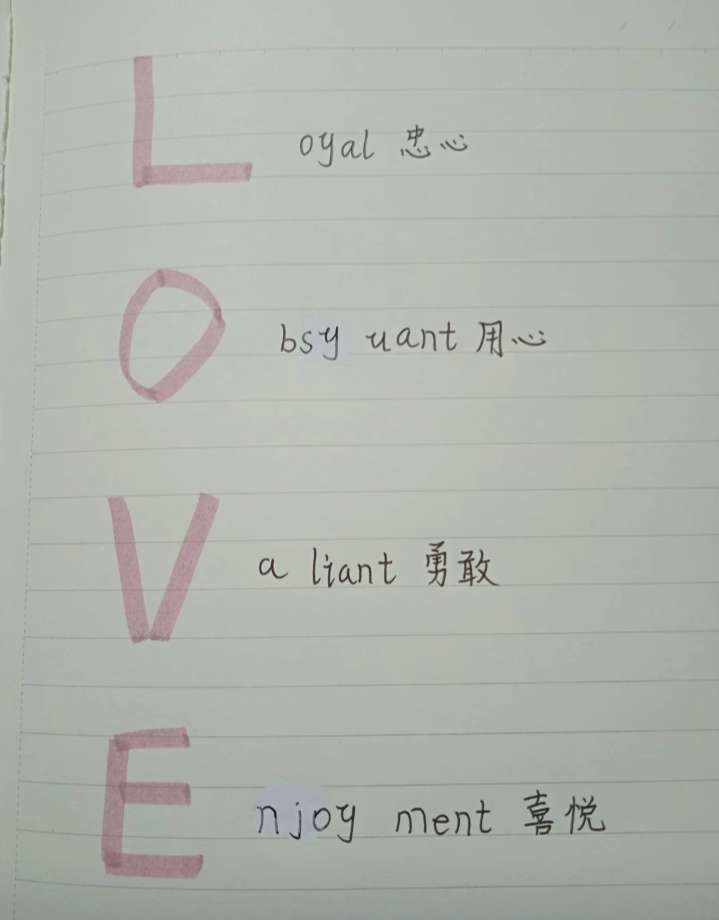 L oyal 忠心
O bsy uant 用心
V a liant 勇敢
E njoy ment 喜悦